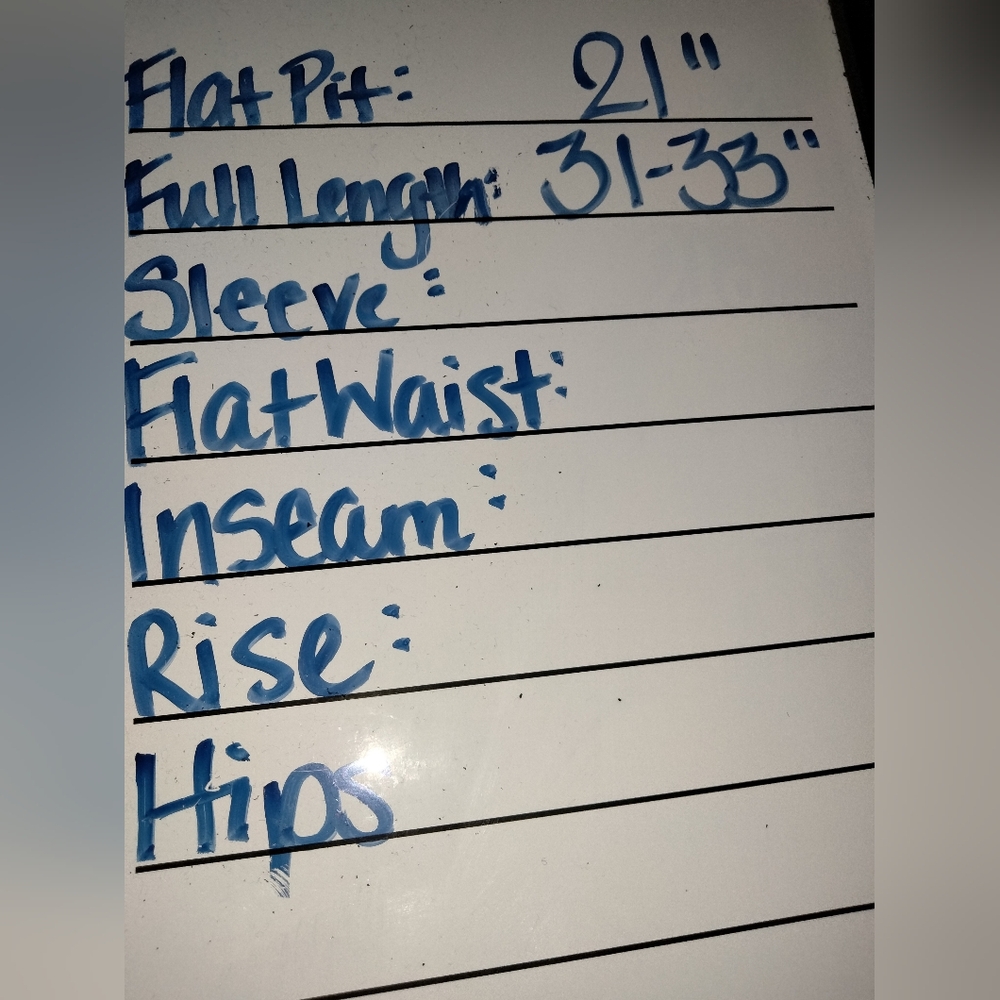 Flat Pit: 21"
Full Length: 31-33"
Sleeve:
Flat Waist:
Inseam:
Rise:
Hips